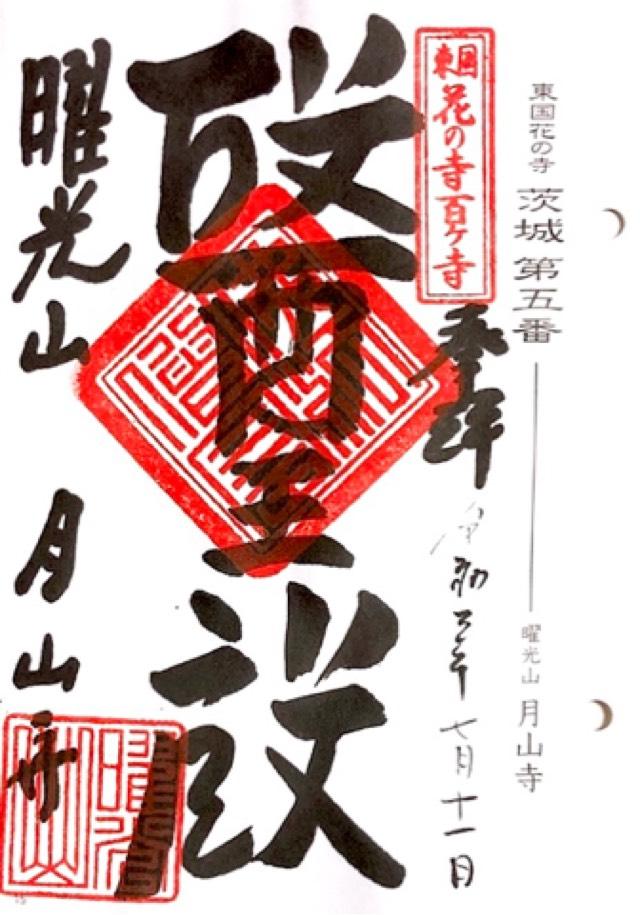 東国花の寺 茨城 第五番 曜光山 月山寺
東国花の寺百ヶ寺
奉拝
令和三年七月十一日
醫王殿
曜光山 月山寺